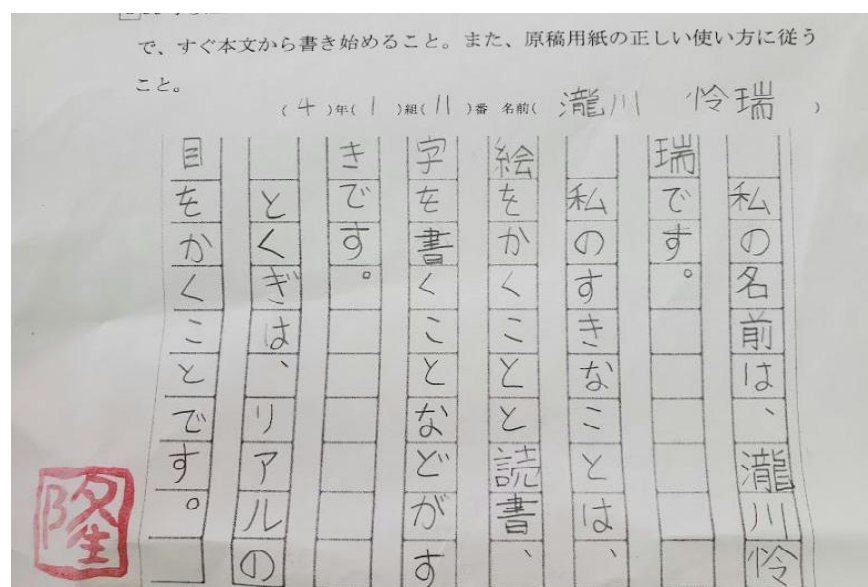 で、すぐ本文から書き始めること。また、原稿用紙の正しい使い方に従う
こと。
(4)年(1)組(11)番 名前(瀧川 怜瑞)
私の名前は、瀧川怜
瑞です。
私のすきなことは、
絵をかくことと読書、
字を書くことなどがす
きです。
とくぎは、リアルの
目をかくことです。
隆